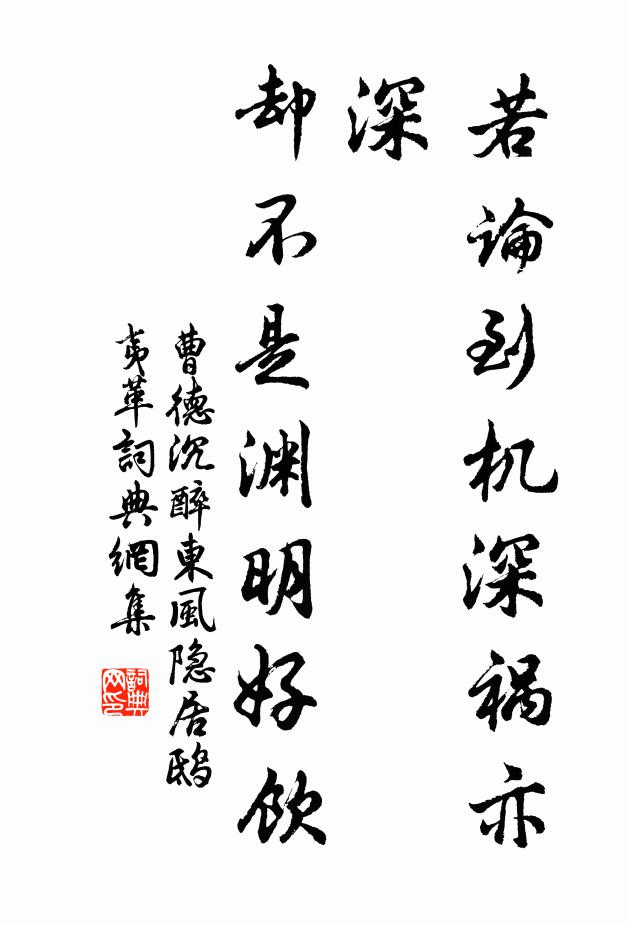 若論到机深祸亦
深
却不是渊明好飲
曹德沉醉東風隐居鸱
夷革詞典網集
詞典
网印